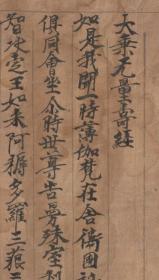 大乘无量壽經
如是我聞一時薄伽梵在舍衛國
俱同會坐尒時世尊告曼殊室利
智決定王如来阿𪏆多羅三藐三